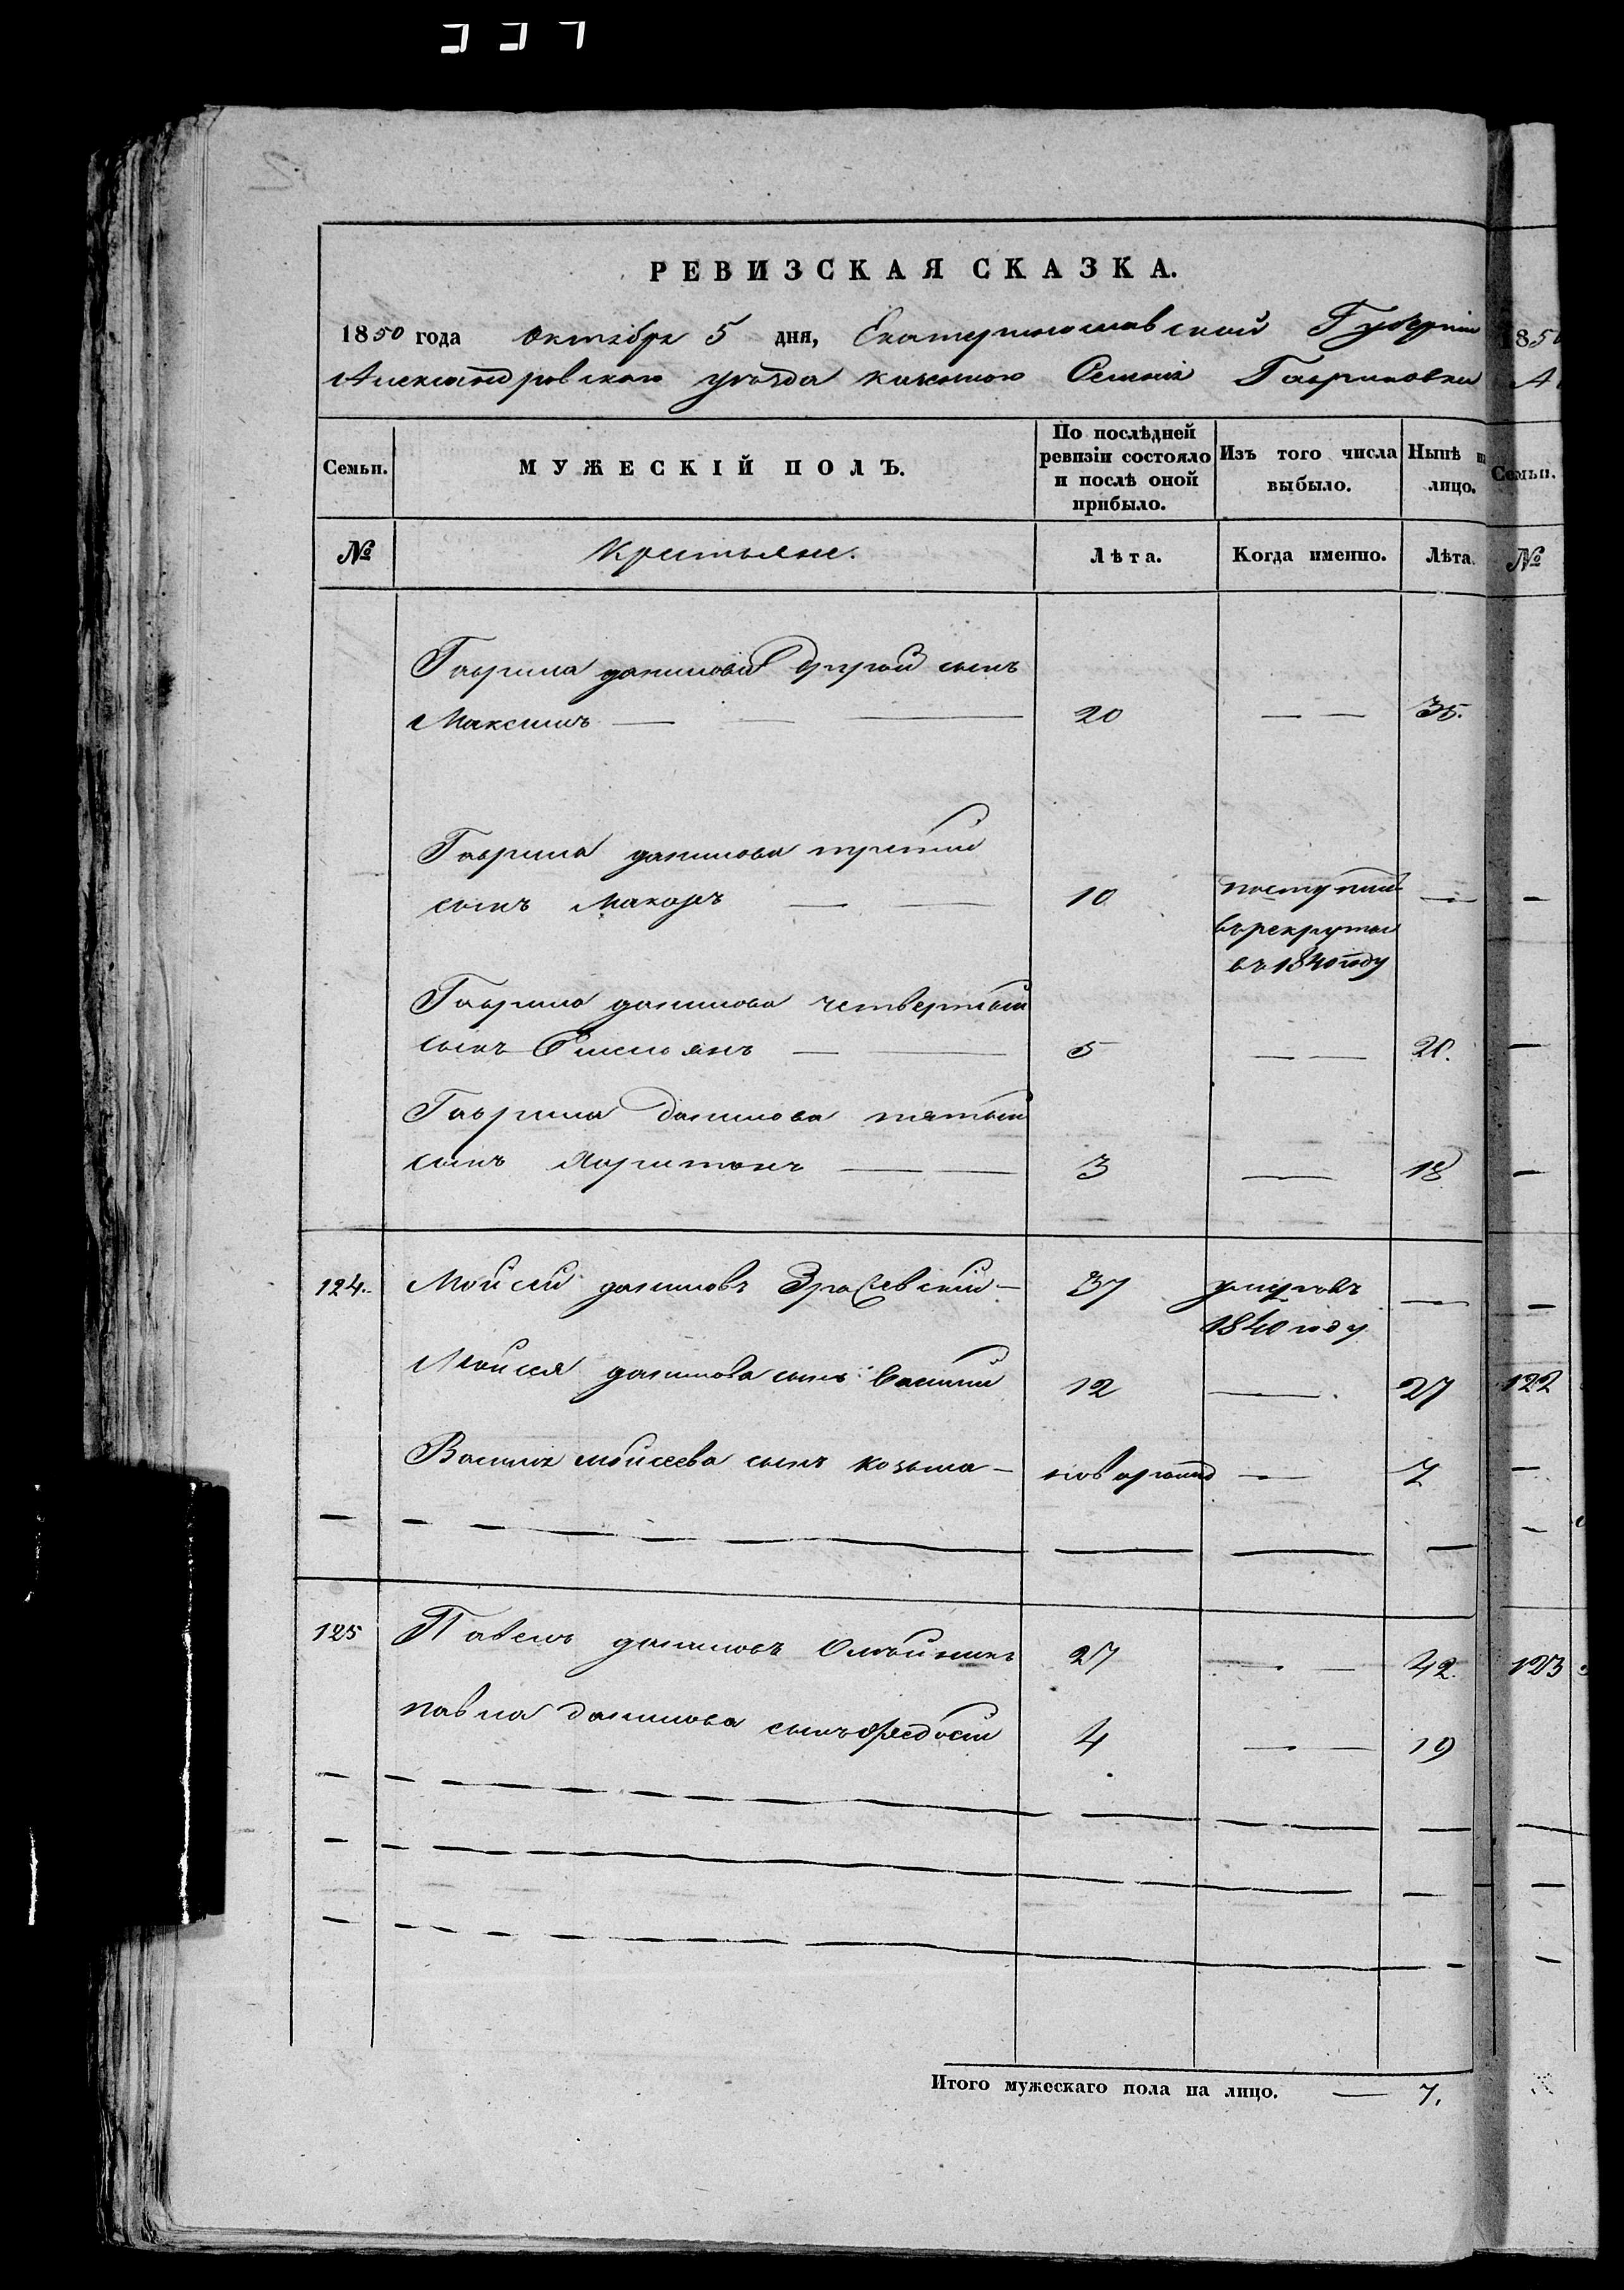 РЕВИЗСКАЯ СКАЗКА.
1850 года октября 5 дня, Екатеринославской Губерніи
Александровского уезда казенного Селенія Гавриловки
Семьи. МУЖЕСКІЙ ПОЛЪ. По послѣдней ревизіи состояло и послѣ оной прибыло. Изъ того числа выбыло. Нынѣ лицо.
№ Крестьяне. Лѣта. Когда именно. Лѣта.
Гаврила данилова другой сынъ
Максимъ — — — 20 — — 35.
Гаврила данилова третий
сынъ Макаръ — — 10 поступилъ —
въ рекруты
въ 1840 году
Гаврила данилова четвертый
сынъ Емельянъ — — 5 — — 20.
Гаврила Данилова пятый
сынъ Харитонъ — — 3 — 18
124. Мойсей даниловъ — 37 умре въ —
1840 году
Мойсея данилова сынъ Василий 12 — 27
Василия мойсеева сынъ козьма — новорожд — 7
125 Павелъ даниловъ Олейникъ 27 — — 42.
павла данилова сынъ Федосій 4 — — 19
Итого мужескаго пола на лицо. — 7.
1850
А
Семьи.
№
122
123